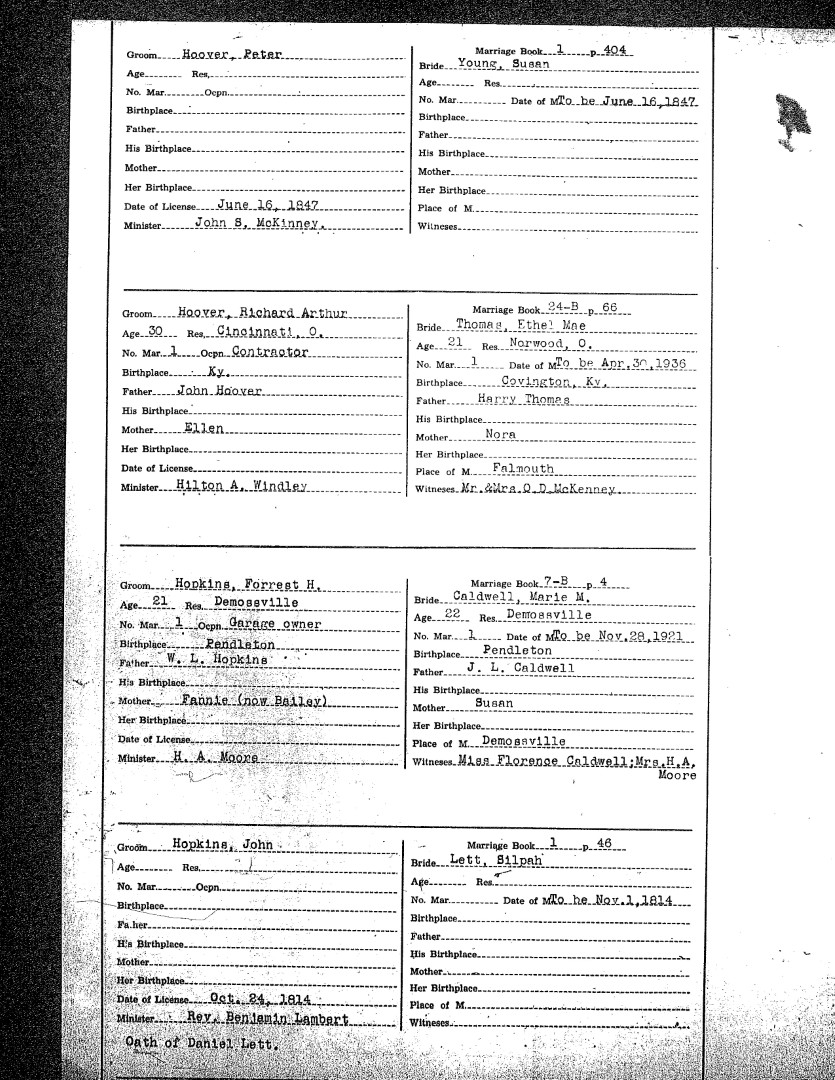 Groom Hoover, Peter
Age Res.
No. Mar. Ocpn.
Birthplace
Father
His Birthplace
Mother
Her Birthplace
Date of License June 16, 1847
Minister John S. McKinney.
Marriage Book 1 p. 404
Bride Young, Susan
Age Res.
No. Mar. Date of M. To be June 16,1847
Birthplace
Father
His Birthplace
Mother
Her Birthplace
Place of M.
Witnesses
Groom Hoover, Richard Arthur
Age 30 Res. Cincinnati, O.
No. Mar. 1 Ocpn. Contractor
Birthplace Ky.
Father John Hoover
His Birthplace
Mother Ellen
Her Birthplace
Date of License
Minister Hilton A. Windley
Marriage Book 24-B p. 66
Bride Thomas, Ethel Mae
Age 21 Res. Norwood, O.
No. Mar. 1 Date of M. To be Apr.30,1936
Birthplace Covington, Ky.
Father Harry Thomas
His Birthplace
Mother Nora
Her Birthplace
Place of M. Falmouth
Witnesses Mr.&Mrs.O.D.McKenney
Groom Hopkins, Forrest H.
Age 21 Res. Demossville
No. Mar. 1 Ocpn. Garage owner
Birthplace Pendleton
Father W. L. Hopkins
His Birthplace
Mother Fannie (now Bailey)
Her Birthplace
Date of License
Minister H. A. Moore
Marriage Book 7-B p. 4
Bride Caldwell, Marie M.
Age 22 Res. Demossville
No. Mar. 1 Date of M. To be Nov.28,1921
Birthplace Pendleton
Father J. L. Caldwell
His Birthplace
Mother Susan
Her Birthplace
Place of M. Demossville
Witnesses Miss Florence Caldwell;Mrs.H.A.
Moore
Groom Hopkins, John
Age Res.
No. Mar. Ocpn.
Birthplace
Father
His Birthplace
Mother
Her Birthplace
Date of License Oct. 24, 1814
Minister Rev. Benjamin Lambert
Oath of Daniel Lett.
Marriage Book 1 p. 46
Bride Lett, Silpah
Age Res.
No. Mar. Date of M. To be Nov.1,1814
Birthplace
Father
His Birthplace
Mother
Her Birthplace
Place of M.
Witnesses